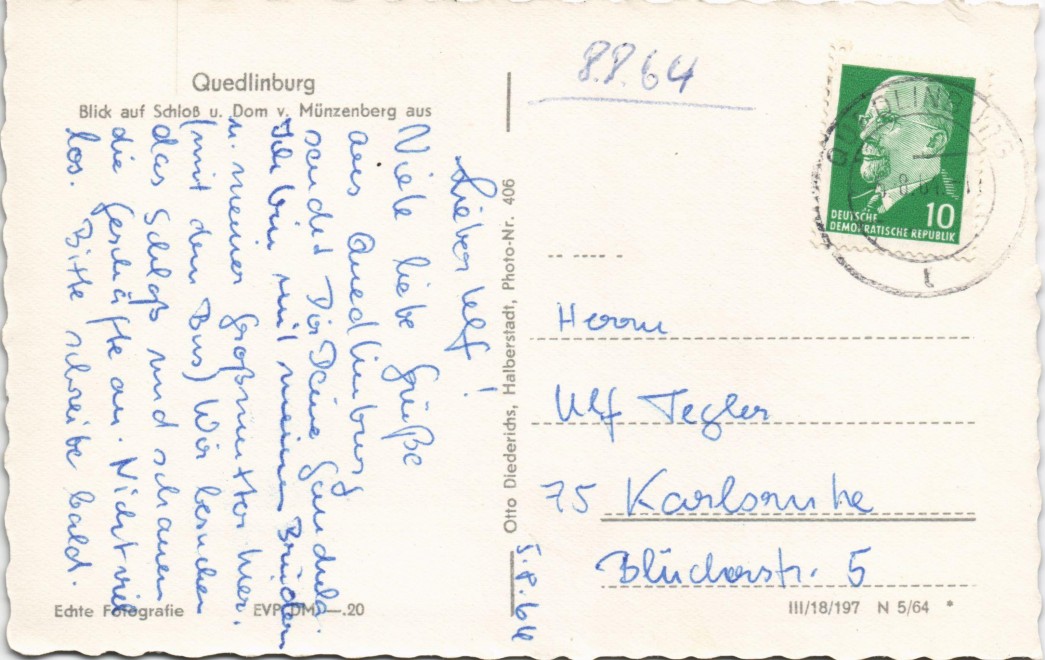 Quedlinburg
Blick auf Schloß u. Dom v. Münzenberg aus
Lieber Ulf!
Viele liebe Grüße
aus Quedlinburg
sendet Dir Deine
Ich bin mit meinem Brüdern
u. meiner Großmutter hier.
(mit dem Bus) Wir besuchen
das Schloß und schauen
die Geschäfte an. Nicht viel
los. Bitte schreibe bald.
Echte Fotografie EVP DM —.20
Otto Diederichs, Halberstadt, Photo-Nr. 406
5.8.64
8.8.64
DEUTSCHE
DEMOKRATISCHE REPUBLIK
10
QUEDLINBURG
Herrn
Ulf Tegler
75 Karlsruhe
Blücherstr. 5
III/18/197 N 5/64 *